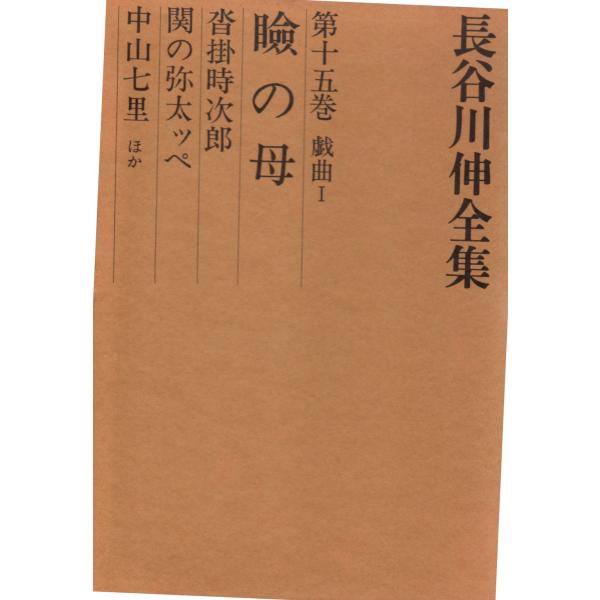 長谷川伸全集
第十五巻 戯曲Ⅰ
瞼の母
沓掛時次郎
関の弥太ッペ
中山七里 ほか